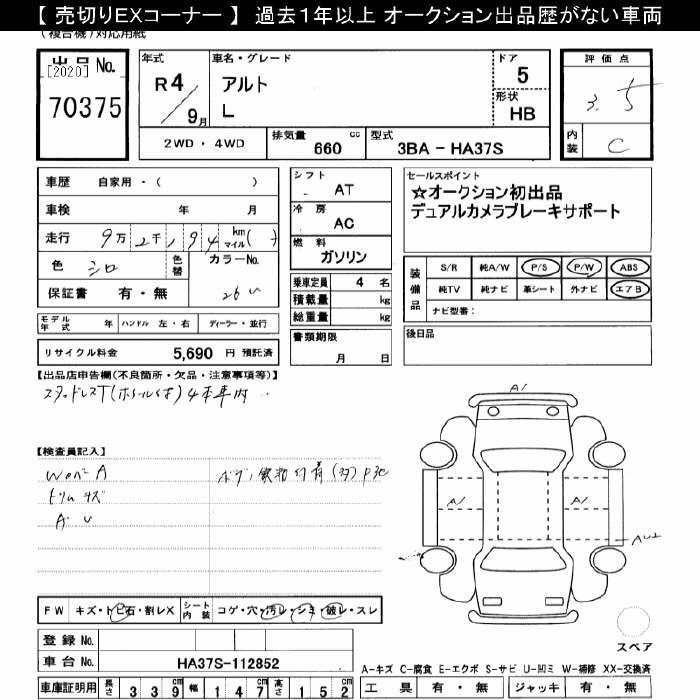 【 売切りEXコーナー 】 過去1年以上 オークション出品歴がない車両
(複合機)対応用紙
出品 No.
[2020]
70375
年式
R4
9月
車名・グレード
アルト
L
ドア
5
形状
HB
2WD ・ 4WD
排気量 cc
660
型式
3BA － HA37S
評価点
3.5
内装
C
車歴 自家用・( )
車検 年 月
走行 9万 2千 1 9 4 km マイル( )
色 シロ 色替 カラーNo.
26U
保証書 有・無
モデル年式 年 ハンドル 左・右 ディーラー・並行
リサイクル料金 5,690 円 預託済
シフト
AT
冷房
AC
燃料
ガソリン
乗車定員 4 名
積載量 kg
総重量 kg
書類期限
月 日
セールスポイント
☆オークション初出品
デュアルカメラブレーキサポート
装備品
S/R 純A/W P/S P/W ABS
純TV 純ナビ 革シート 外ナビ エアB
ナビ型番:
後日品
【出品店申告欄(不良箇所・欠品・注意事項等)】
スタッドレスT(ホイール付)4本車内
【検査員記入】
WペーA
トリムキズ
A U
(多)
FW キズ・トビ石・割レX
シート内装 コゲ・穴・汚レ・シミ・破レ・スレ
登録 No.
車台 No. HA37S-112852
車庫証明用 長さ 339cm 幅 147cm 高さ 152cm
A1
A1
A1
AU1
スペア
A-キズ C-腐食 E-エクボ S-サビ U-凹ミ W-補修 XX-交換済
工具 有・無 ジャッキ 有・無